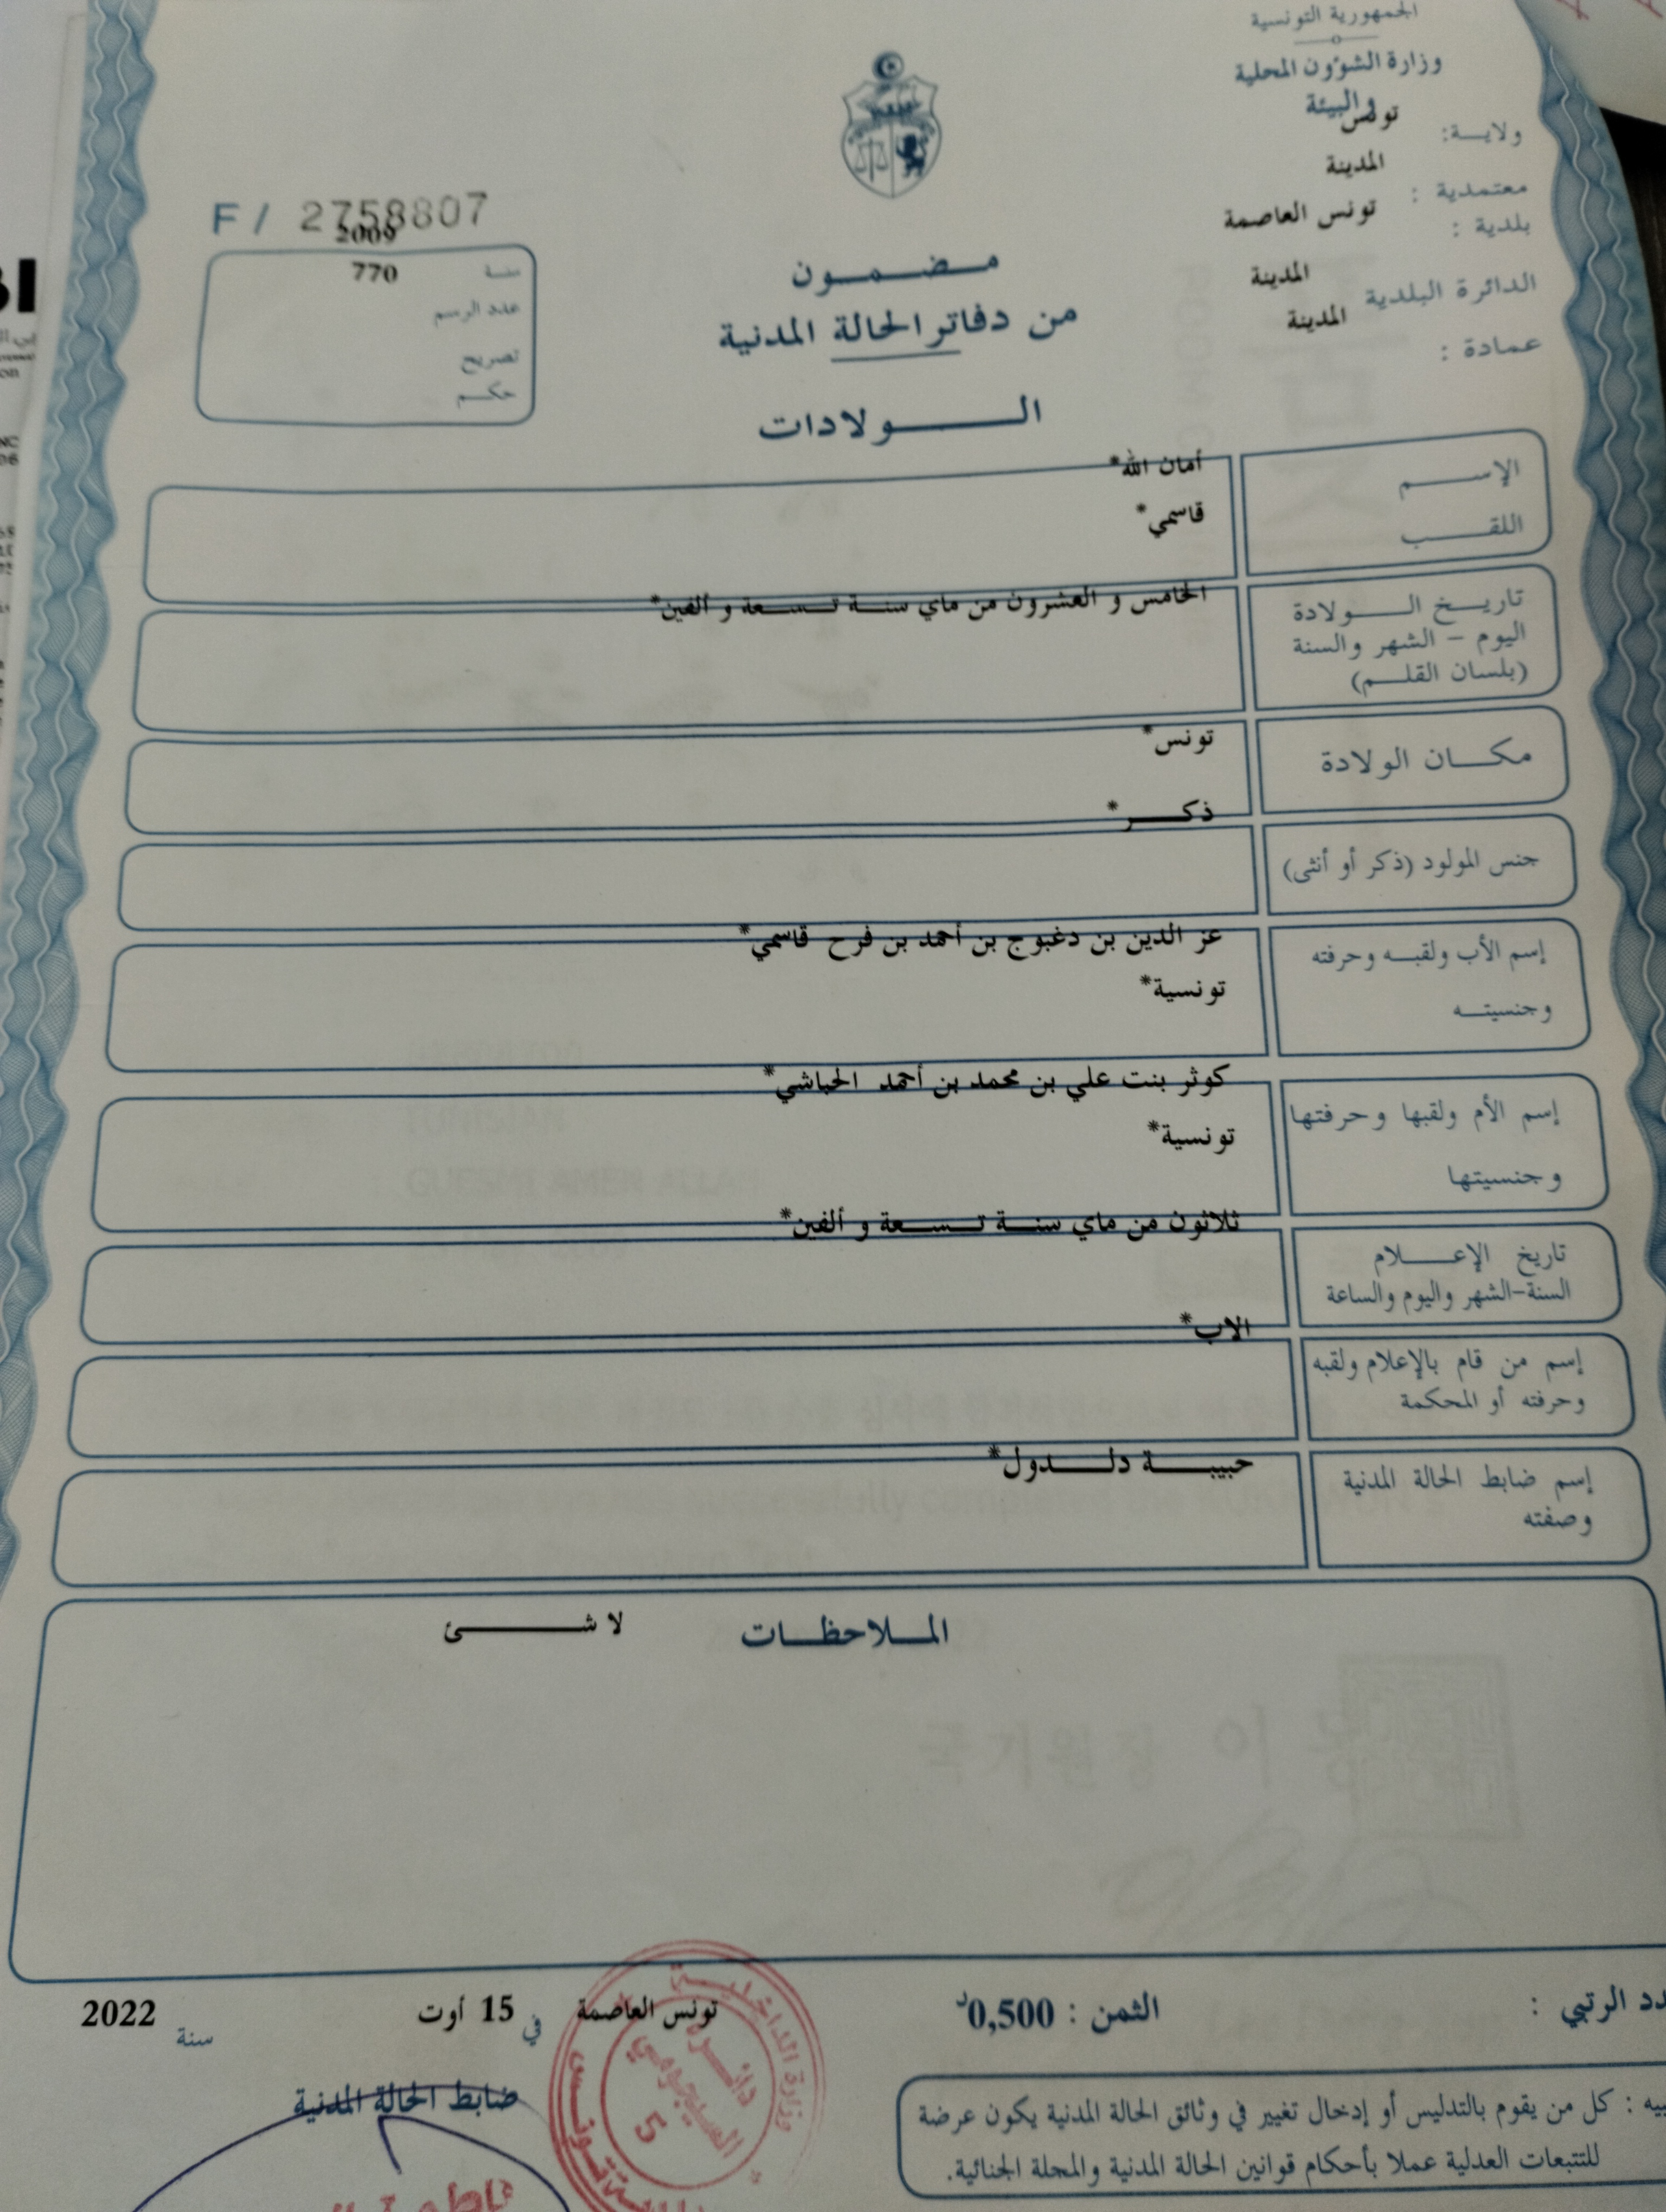 الجمهورية التونسية
وزارة الشؤون المحلية
والبيئة
ولايــة: تونس
معتمدية : المدينة
بلدية : تونس العاصمة
الدائرة البلدية المدينة
عمادة : المدينة
F / 2758807
سنة 2009
عدد الرسم 770
تصريح
حكم
مضمون
من دفاتر الحالة المدنية
الولادات
الإسم أمان الله*
اللقب قاسمي*
تاريخ الولادة الخامس و العشرون من ماي سنة تسعة و ألفين*
اليوم - الشهر والسنة
(بلسان القلم)
مكان الولادة تونس*
جنس المولود (ذكر أو أنثى) ذكر*
إسم الأب ولقبه وحرفته عز الدين بن دغبوج بن أحمد بن فرح قاسمي*
وجنسيته تونسية*
إسم الأم ولقبها وحرفتها كوثر بنت علي بن محمد بن أحمد الحباشي*
وجنسيتها تونسية*
تاريخ الإعلام ثلاثون من ماي سنة تسعة و ألفين*
السنة-الشهر واليوم والساعة
إسم من قام بالإعلام ولقبه الاب*
وحرفته أو المحكمة
إسم ضابط الحالة المدنية حبيبة دلدول*
وصفته
الملاحظات لا شئ
الرتبي :
الثمن : 0,500د
تونس العاصمة في 15 أوت سنة 2022
ضابط الحالة المدنية
وزارة الداخلية
دائرة
السيجومي
5
كل من يقوم بالتدليس أو إدخال تغيير في وثائق الحالة المدنية يكون عرضة
للتتبعات العدلية عملا بأحكام قوانين الحالة المدنية والمجلة الجنائية.